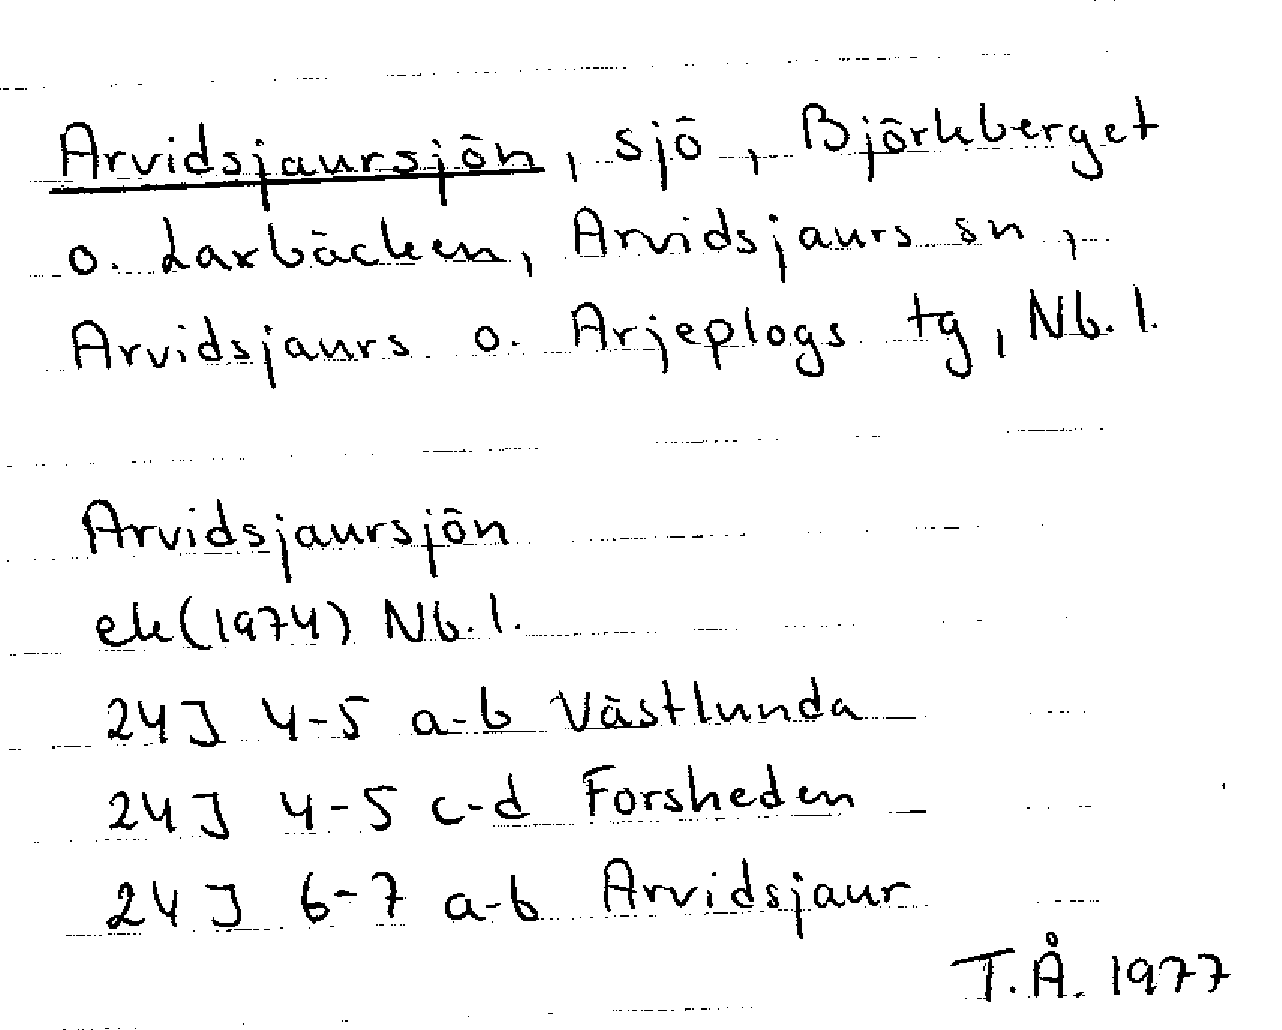 Arvidsjaursjön, sjö, Björkberget
o. Laxbäcken, Arvidsjaurs sn,
Arvidsjaurs o. Arjeplogs tg, Nb. l.
Arvidsjaursjön
ek (1974) Nb. l.
24J 4-5 a-b Västlunda
24J 4-5 c-d Forsheden
24J 6-7 a-b Arvidsjaur
T.Å. 1977